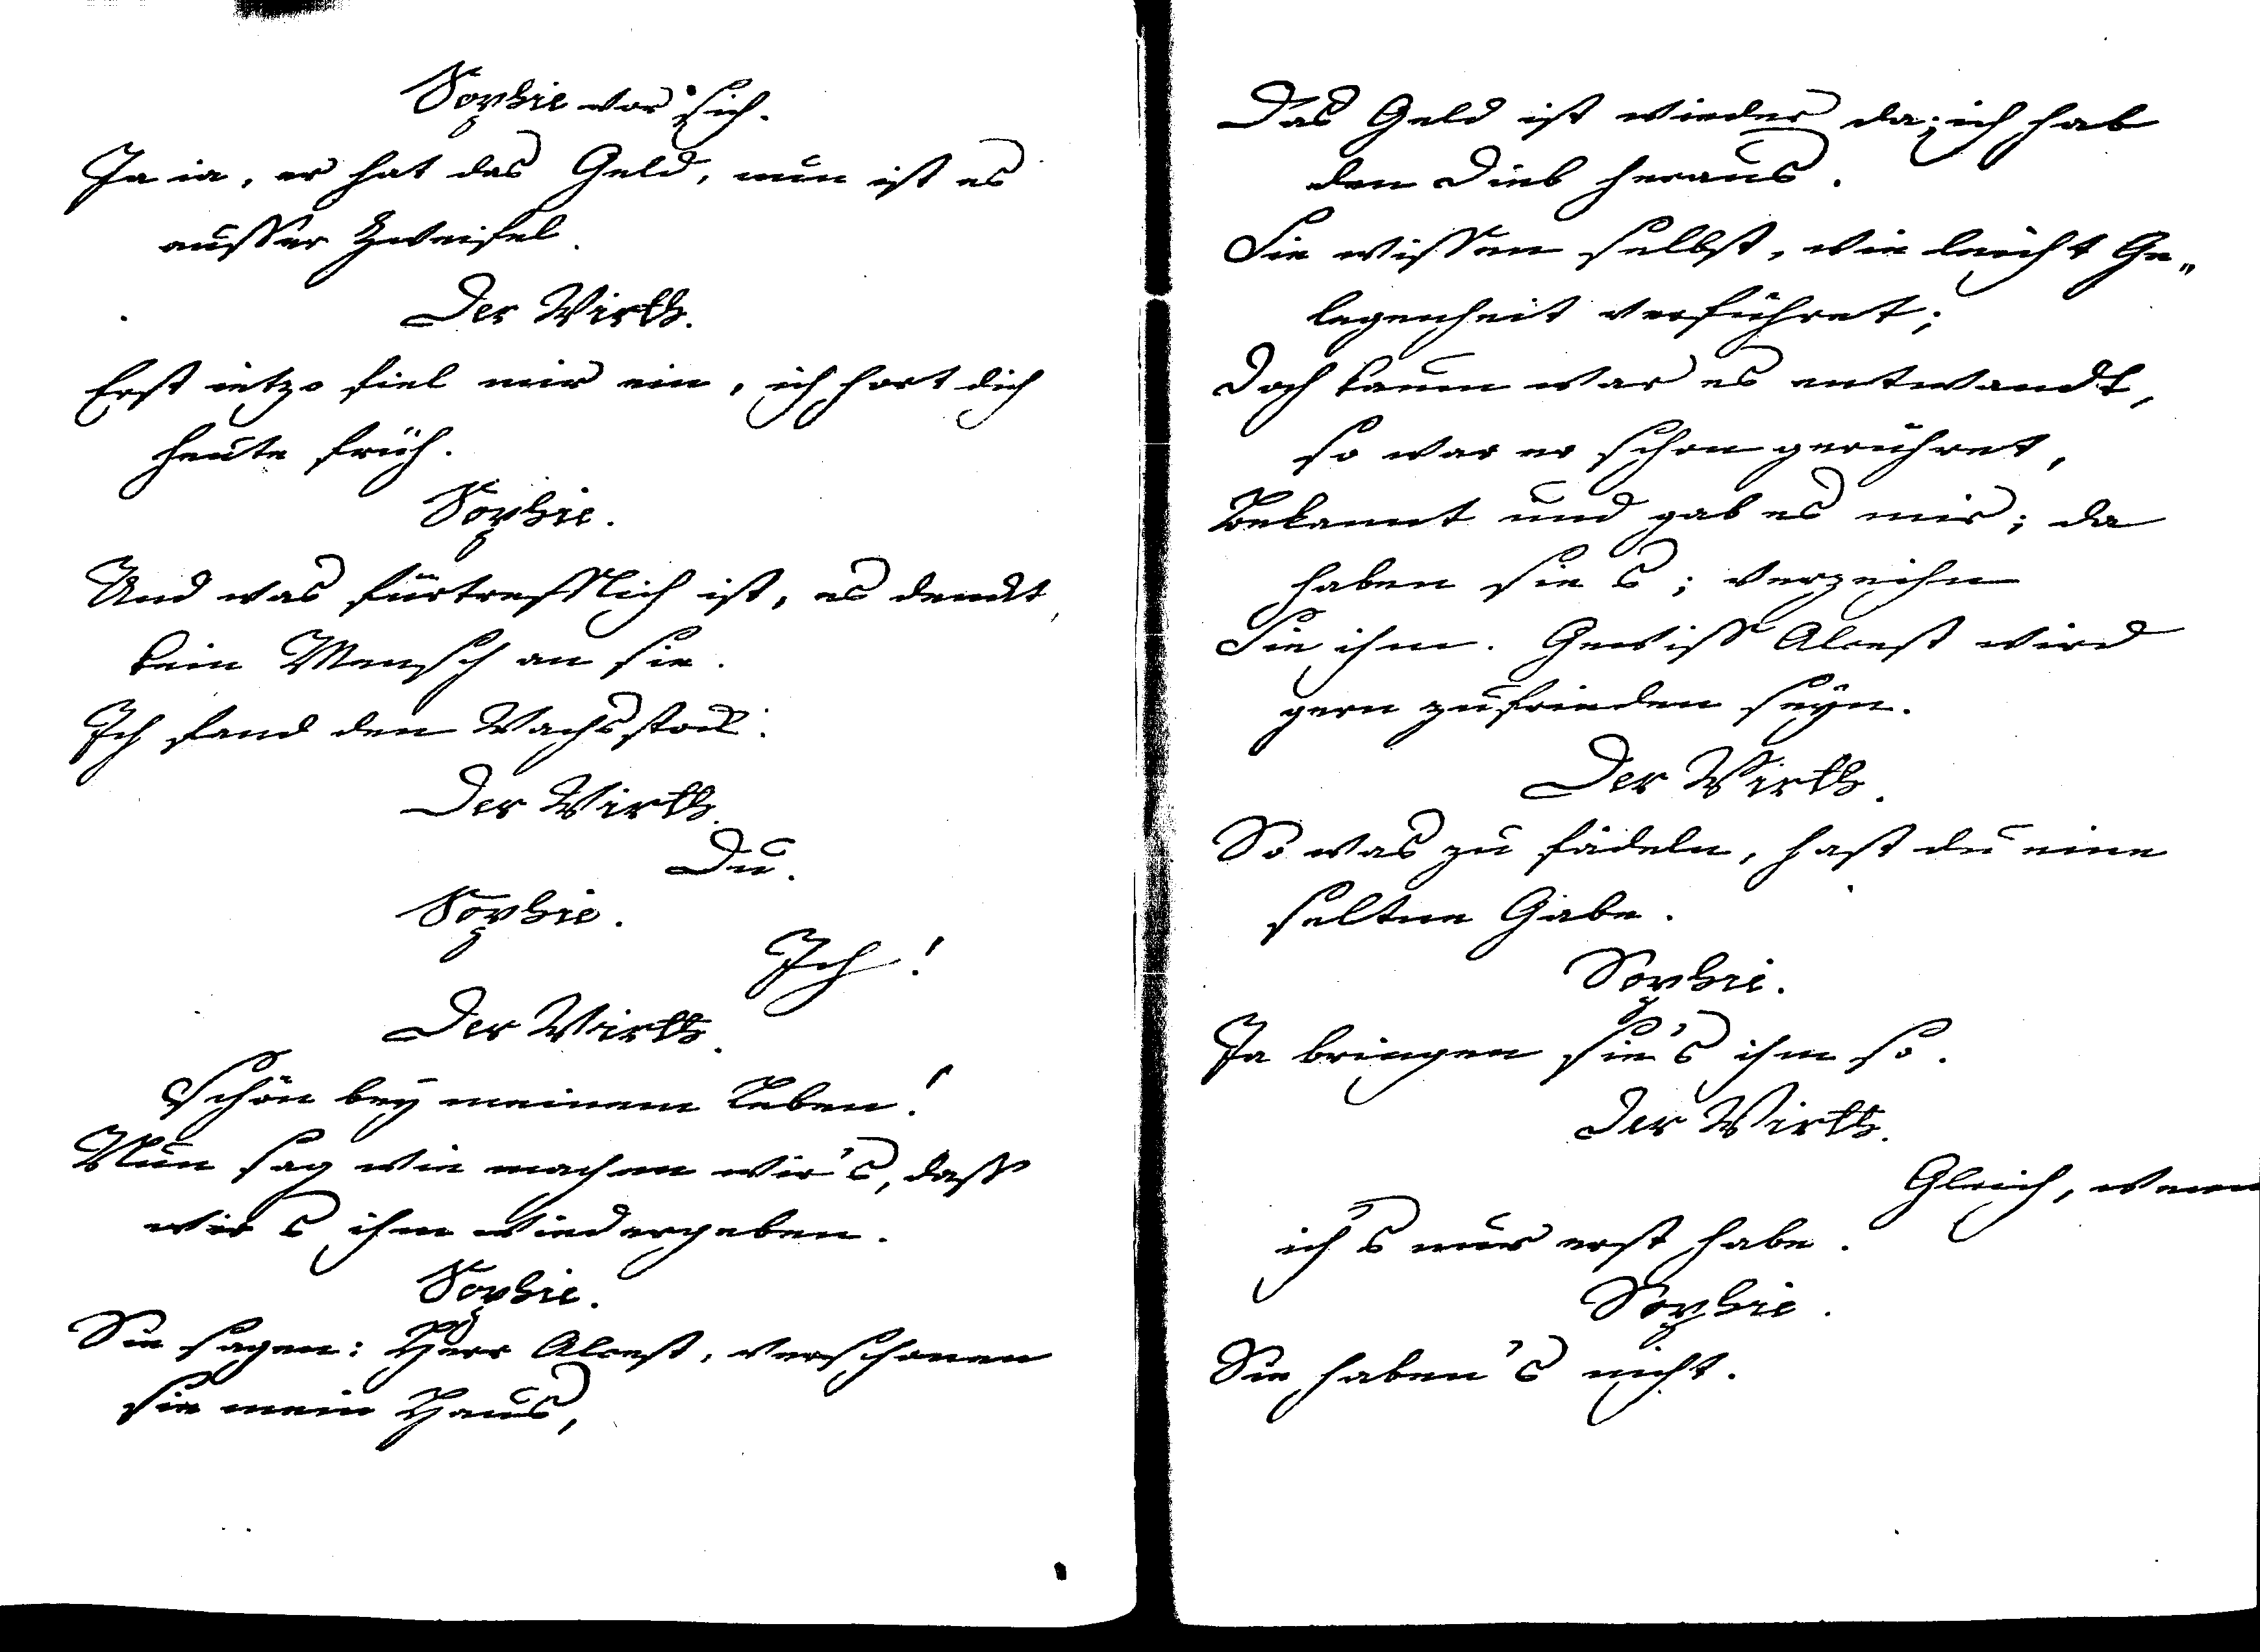 Sophie vor sich.
Ja ia, er hat das Geld, nun ist es
ausser Zweifel.
Der Wirth.
Erst ietzo fiel mir ein, ich hort dich
heute früh.
Sophie.
Und was fürtrefflich ist, es denckt
kein Mensch an sie.
Ich fand den Wachsstock.
Der Wirth.
Du.
Sophie.
Ich!
Der Wirth.
Schön bey meinem Leben!
Nun sag wie machen wir's, dass
wir s ihm wiedergeben.
Sophie.
Sie sagen: Herr Alcest, verschonen
sie mein Haus,
Das Geld ist wieder da; ich hab
den Dieb heraus.
Sie wissen selbst, wie leicht Ge„
legenheit verführet;
Doch kaum war es entwandt,
so war er schon gerühret,
Bekannt und gab es mir; da
haben sie s; verzeihn
Sie ihm. Gewiss Alcest wird
gern zufrieden seyn.
Der Wirth.
So was zu fädeln, hast du eine
seltne Gabe.
Sophie.
Ja bringen sie's ihm so.
Der Wirth.
Gleich, wenn
ich's nur erst habe.
Sophie.
Sie haben's nicht.